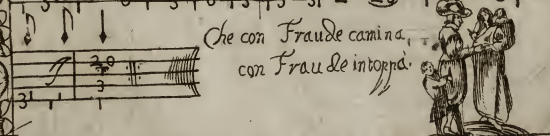 Che con Fraude camina,
con Fraude intoppà.
3 0
3
3